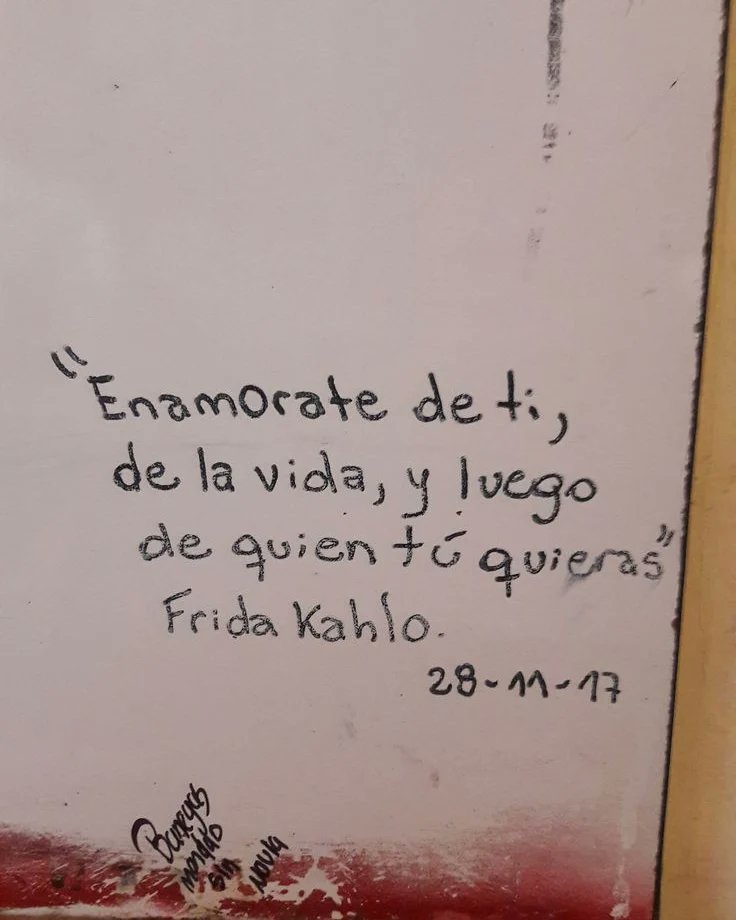 "Enamorate de ti,
de la vida, y luego
de quien tú quieras"
Frida Kahlo.
28-11-17